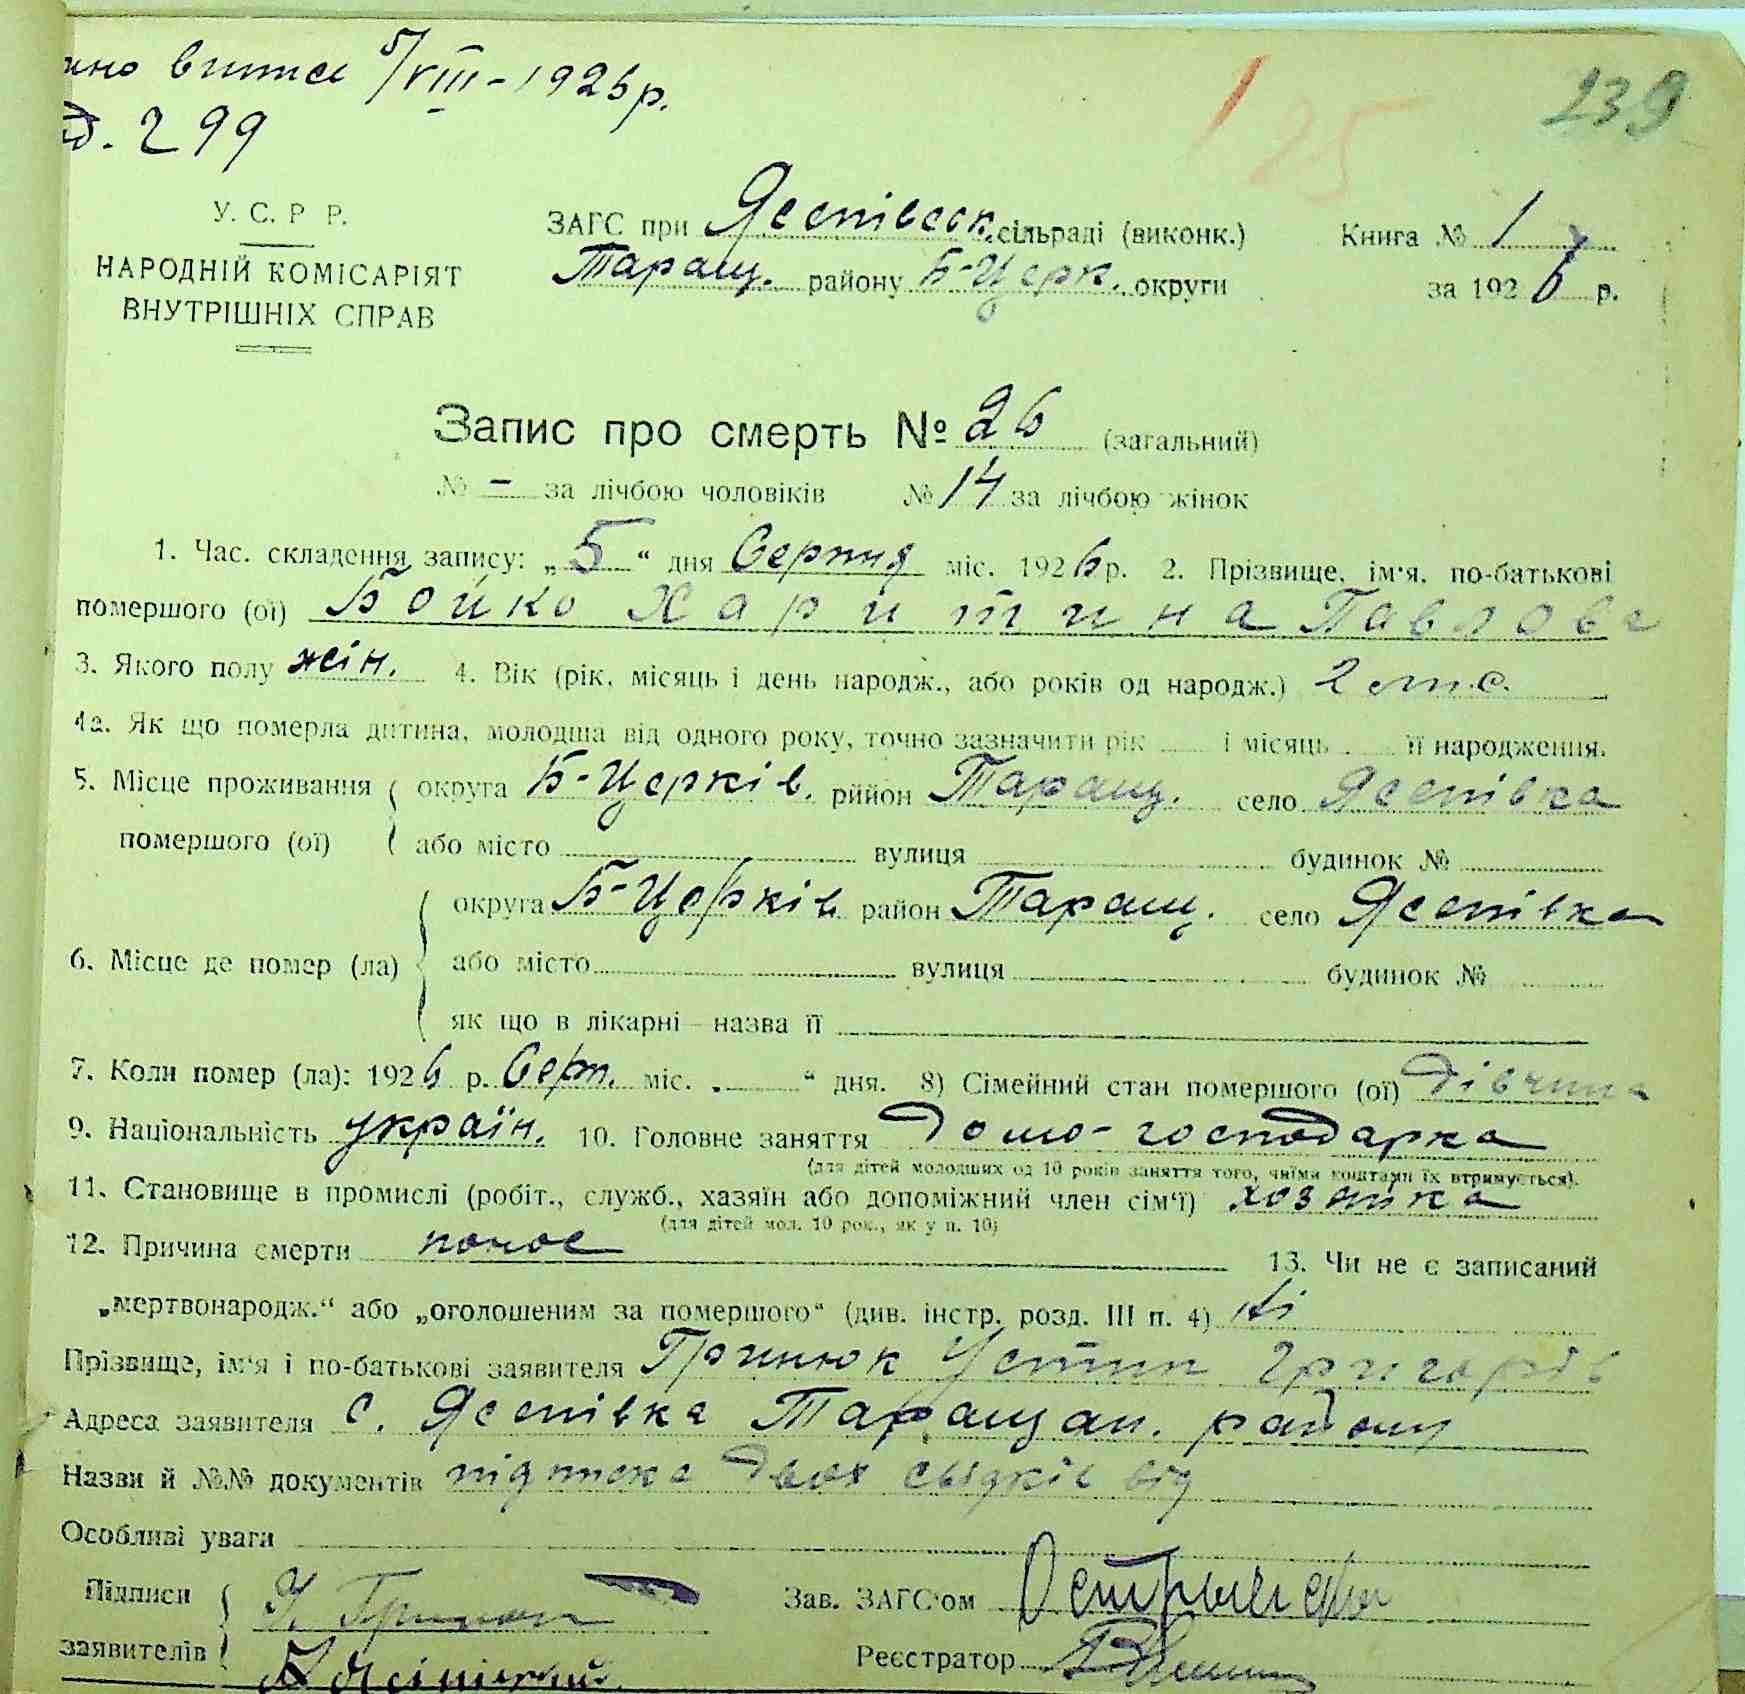 витяг 5/VIII-1926 р.
299
239
125
У. С. Р. Р.
НАРОДНІЙ КОМІСАРІЯТ
ВНУТРІШНІХ СПРАВ
ЗАГС при Ясепівськ. сільраді (виконк.)
Таращ. району Б-Церк. округи
Книга № 1
за 1926 р.
Запис про смерть № 26 (загальний)
№ – за лічбою чоловіків № 14 за лічбою жінок
1. Час. складення запису: „5“ дня Серпня міс. 1926 р. 2. Прізвище, ім‘я, по-батькові
помершого (ої) Бойко Харитина Павлова
3. Якого полу жін. 4. Вік (рік, місяць і день народж., або років од народж.) 2
4а. Як що померла дитина, молодша від одного року, точно зазначити рік і місяць її народження.
5. Місце проживання помершого (ої) округа Б-Церків. рййон Таращ. село Ясепівка
або місто вулиця будинок №
6. Місце де помер (ла) округа Б-Церків. район Таращ. село Ясепівка
або місто вулиця будинок №
як що в лікарні – назва її
7. Коли помер (ла): 1926 р. Серп. міс. „ – “ дня. 8) Сімейний стан помершого (ої) дівчина
9. Національність україн. 10. Головне заняття Домо-господарка
(для дітей молодших од 10 років заняття того, чиїми коштами їх втримується).
11. Становище в промислі (робіт., служб., хазяїн або допоміжний член сім‘ї) хозяйка
(для дітей мол. 10 рок., як у п. 10)
12. Причина смерти понос 13. Чи не є записаний
„мертвонародж.“ або „оголошеним за помершого“ (див. інстр. розд. III п. 4) Ні
Прізвище, ім‘я і по-батькові заявителя Гринюк Устин Григорів
Адреса заявителя с. Ясепівка Таращан. району
Назви й №№ документів підписка двох свідків
Особливі уваги
Підписи
заявителів
У. Гринюк
Зав. ЗАГС‘ом
Реєстратор